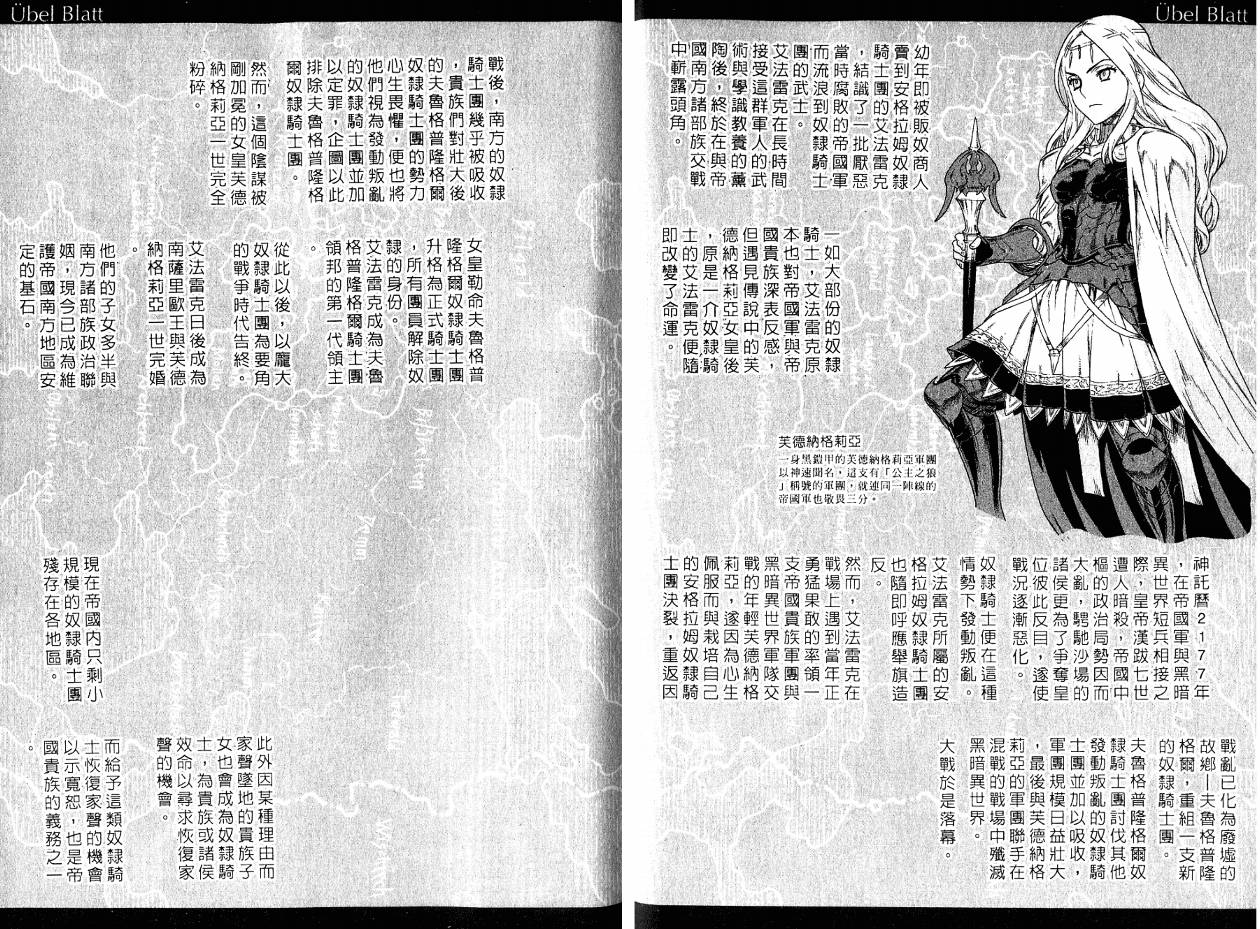 Übel Blatt
Übel Blatt
幼年即被販奴商人
賣到安格拉姆奴隸
騎士團的艾法雷克
，結識了一批厭惡
當時腐敗的帝國軍
而流浪到奴隸騎士
團的武士。
艾法雷克在長時間
接受這群軍人的武
術與學識教養的薰
陶後，終於在與帝
國南方諸部族交戰
中嶄露頭角。
一如大部份的奴隸
騎士，艾法雷克原
本也對帝國軍與帝
國貴族深表反感，
但遇見傳說中的芙
德納格莉亞女皇後
，原是一介奴隸騎
士的艾法雷克便隨
即改變了命運。
芙德納格莉亞
一身黑鎧甲的芙德納格莉亞軍團
以神速聞名，這支有「公主之狼
」稱號的軍團，就連同一陣線的
帝國軍也敬畏三分。
神託曆2177年
，在帝國軍與黑暗
異世界短兵相接之
際，皇帝漢跋七世
遭人暗殺，帝國中
樞的政治局勢因而
大亂，騁馳沙場的
諸侯更為了爭奪皇
位彼此反目，遂使
戰況逐漸惡化。
奴隸騎士便在這種
情勢下發動叛亂。
艾法雷克所屬的安
格拉姆奴隸騎士團
也隨即呼應舉旗造
反。
然而，艾法雷克在
戰場上遇到當年正
勇猛果敢的率領一
支帝國貴族軍團與
黑暗異世界軍隊交
戰的年輕芙德納格
莉亞，遂因為心生
佩服而與栽培自己
的安格拉姆奴隸騎
士團決裂，重返因
戰亂已化為廢墟的
故鄉—夫魯格普隆
格爾，重組一支新
的奴隸騎士團。
夫魯格普隆格爾奴
隸騎士團討伐其他
發動叛亂的奴隸騎
士團並加以吸收，
軍團規模日益壯大
，最後與芙德納格
莉亞的軍團聯手在
混戰的戰場中殲滅
黑暗異世界。
大戰於是落幕。
戰後，南方的奴隸
騎士團幾乎被吸收
，貴族們對壯大後
的夫魯格普隆格爾
奴隸騎士團的勢力
心生畏懼，便也將
他們視為發動叛亂
的奴隸騎士團並加
以定罪，企圖以此
排除夫魯格普隆格
爾奴隸騎士團。
然而，這個陰謀被
剛加冕的女皇芙德
納格莉亞一世完全
粉碎。
女皇勒命夫魯格普
隆格爾奴隸騎士團
升格為正式騎士團
，所有團員解除奴
隸的身份。
艾法雷克成為夫魯
格普隆格爾騎士團
領邦的第一代領主
。
從此以後，以龐大
奴隸騎士團為要角
的戰爭時代告終。
艾法雷克日後成為
南薩里歐王與芙德
納格莉亞一世完婚
。
他們的子女多半與
南方諸部族政治聯
姻，現今已成為維
護帝國南方地區安
定的基石。
現在帝國內只剩小
規模的奴隸騎士團
殘存在各地區。
此外因某種理由而
家聲墜地的貴族子
女也會成為奴隸騎
士，為貴族或諸侯
效命以尋求恢復家
聲的機會。
而給予這類奴隸騎
士恢復家聲的機會
以示寬恕，也是帝
國貴族的義務之一
。